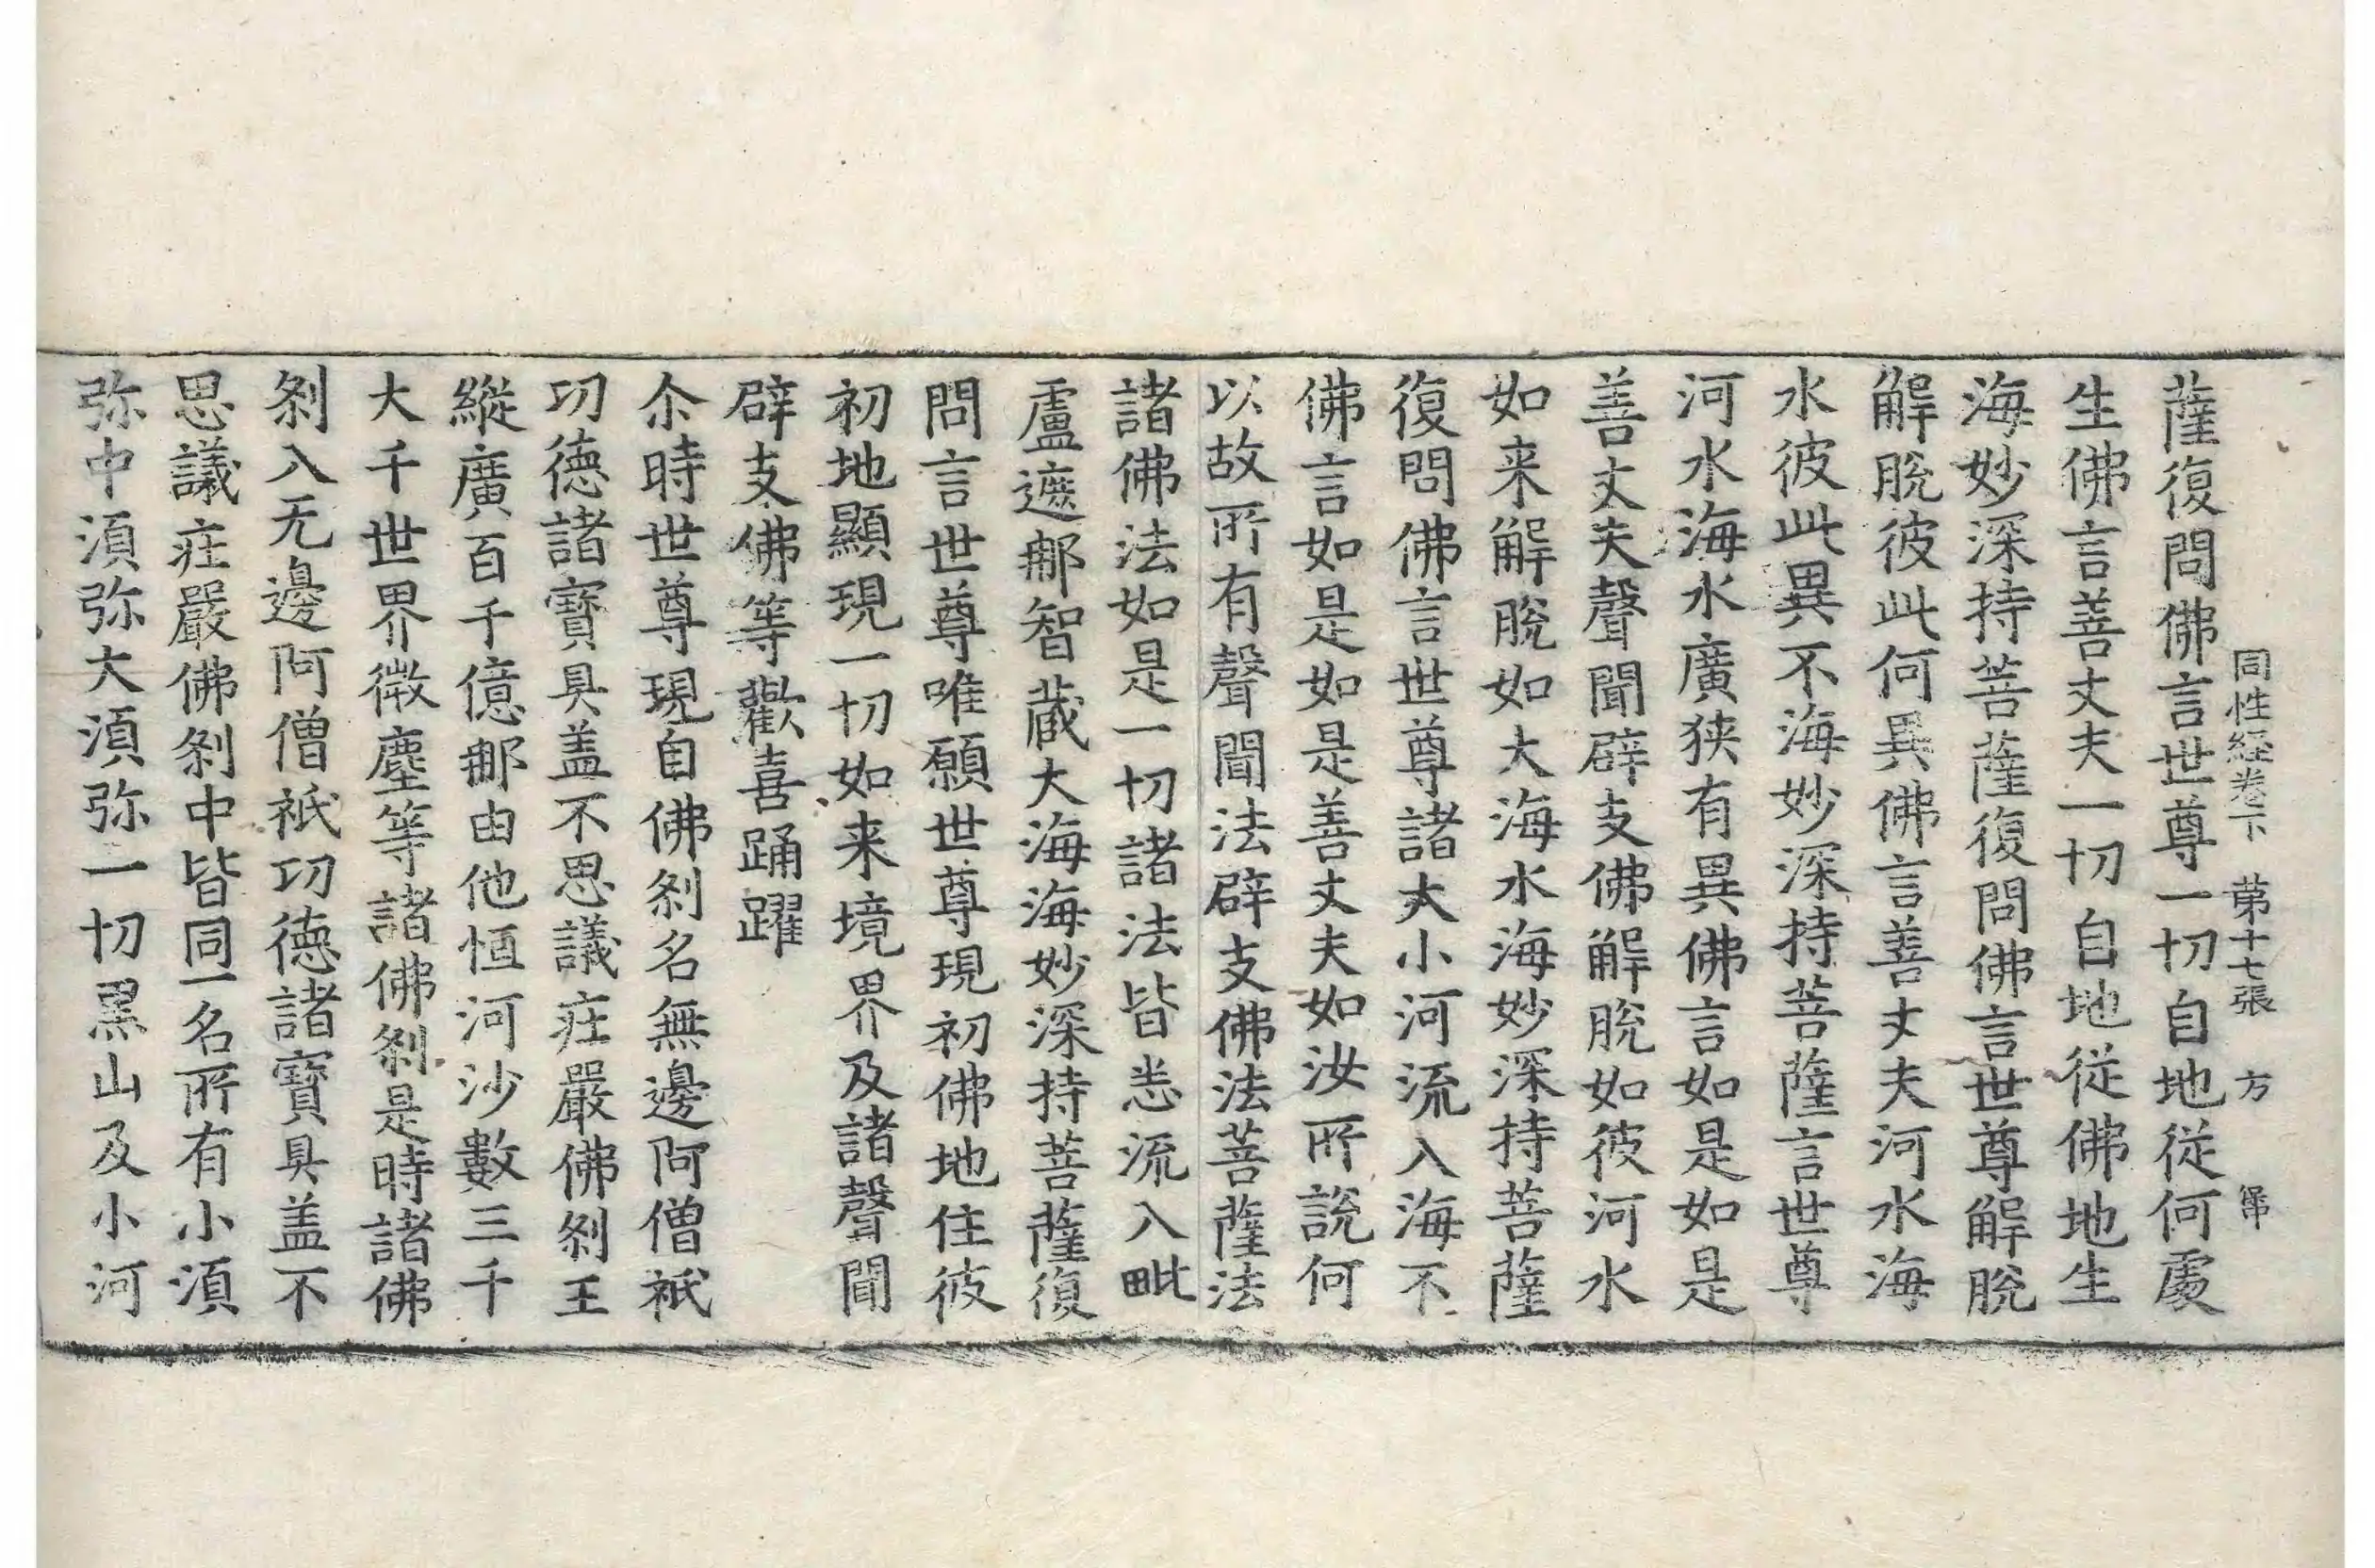 同性経卷下 苐十七張 方
薩復問佛言世尊一切自地従何處
生佛言善丈夫一切自地従佛地生
海妙深持菩薩復問佛言世尊解脫
解脫彼此何異佛言善丈夫河水海
水彼此異不海妙深持菩薩言世尊
河水海水廣狭有異佛言如是如是
善丈夫聲聞辟支佛解脫如彼河水
如来解脫如大海水海妙深持菩薩
復問佛言世尊諸大小河流入海不
佛言如是如是善丈夫如汝所說何
以故所有聲聞法辟支佛法菩薩法
諸佛法如是一切諸法皆悉流入毗
盧遮那智蔵大海海妙深持菩薩復
問言世尊唯願世尊現初佛地住彼
初地顯現一切如来境界及諸聲聞
辟支佛等歡喜踊躍
尒時世尊現自佛刹名無邊阿僧祇
功德諸寶具盖不思議莊嚴佛刹王
縱廣百千億那由他恒河沙數三千
大千世界微塵等諸佛刹是時諸佛
刹入无邊阿僧祇功德諸寶具盖不
思議莊嚴佛刹中皆同一名所有小湏
弥中湏弥大湏弥一切黑山及小河